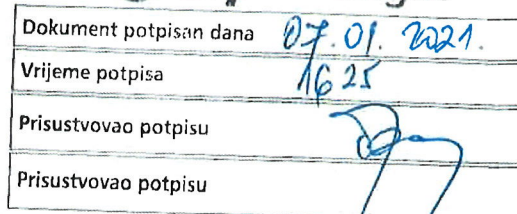 Dokument potpisan dana 07.01.2021.
Vrijeme potpisa 16 25
Prisustvovao potpisu
Prisustvovao potpisu